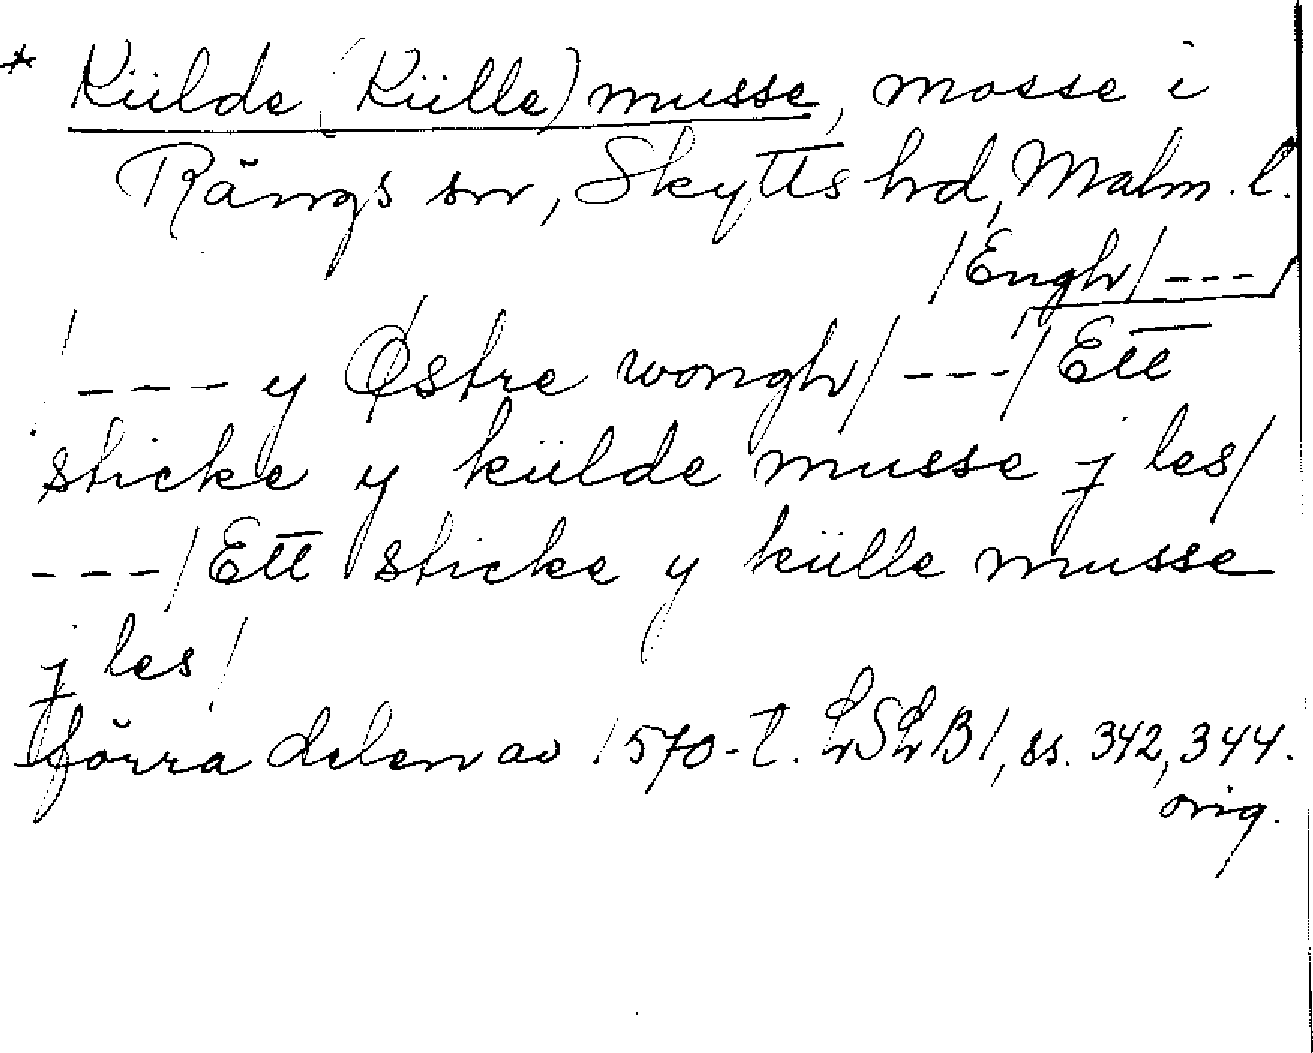 * Külde (Külle) musse, mosse i
Rängs sn, Skytts hd, Malm. l.
/Engh/---/
/---y Østre wongh/---/Ett
sticke y külde musse j les/
---/Ett sticke y külle musse
j les/
förra delen av 1570-t. LSLB1, ss. 342, 344.
orig.